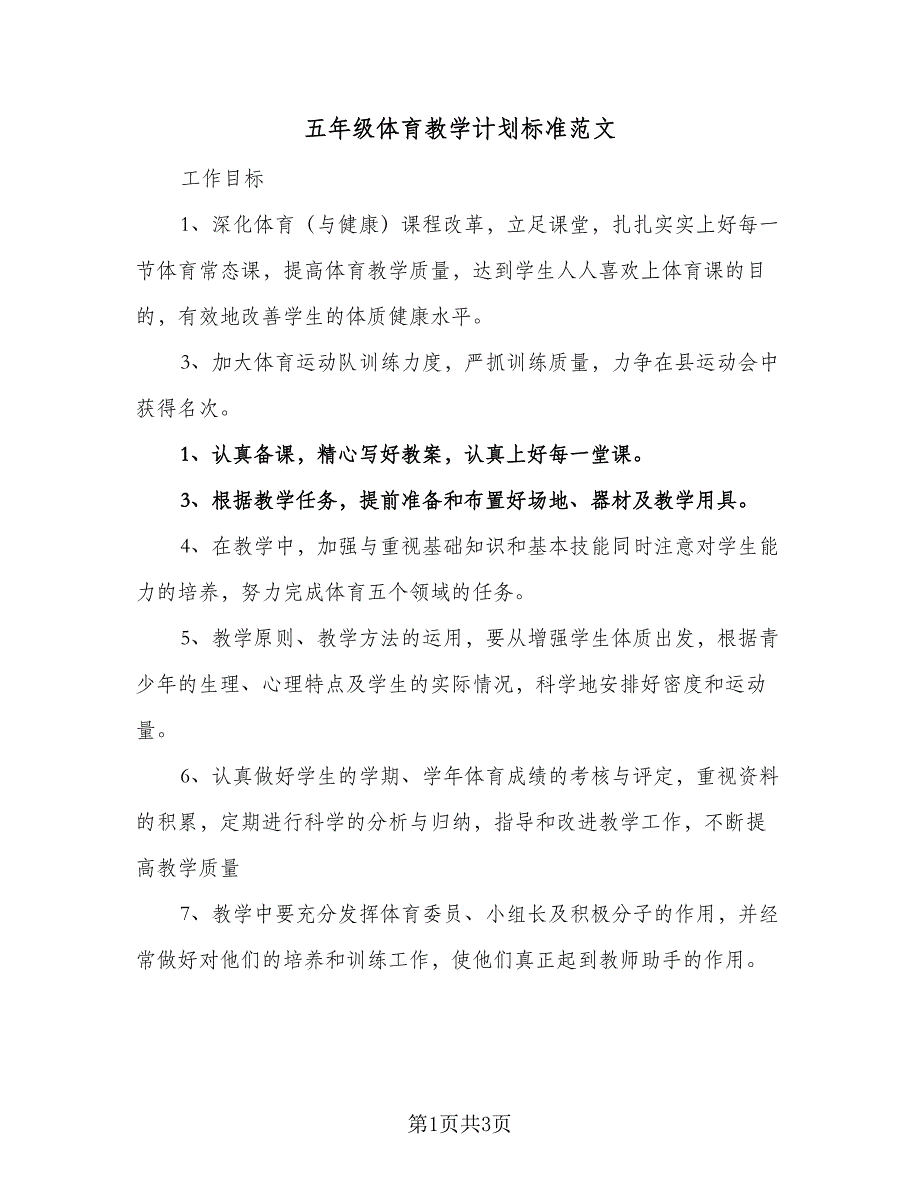 五年级体育教学计划标准范文
工作目标
1、深化体育（与健康）课程改革，立足课堂，扎扎实实上好每一
节体育常态课，提高体育教学质量，达到学生人人喜欢上体育课的目
的，有效地改善学生的体质健康水平。
3、加大体育运动队训练力度，严抓训练质量，力争在县运动会中
获得名次。
1、认真备课，精心写好教案，认真上好每一堂课。
3、根据教学任务，提前准备和布置好场地、器材及教学用具。
4、在教学中，加强与重视基础知识和基本技能同时注意对学生能
力的培养，努力完成体育五个领域的任务。
5、教学原则、教学方法的运用，要从增强学生体质出发，根据青
少年的生理、心理特点及学生的实际情况，科学地安排好密度和运动
量。
6、认真做好学生的学期、学年体育成绩的考核与评定，重视资料
的积累，定期进行科学的分析与归纳，指导和改进教学工作，不断提
高教学质量
7、教学中要充分发挥体育委员、小组长及积极分子的作用，并经
常做好对他们的培养和训练工作，使他们真正起到教师助手的作用。
第1页共3页